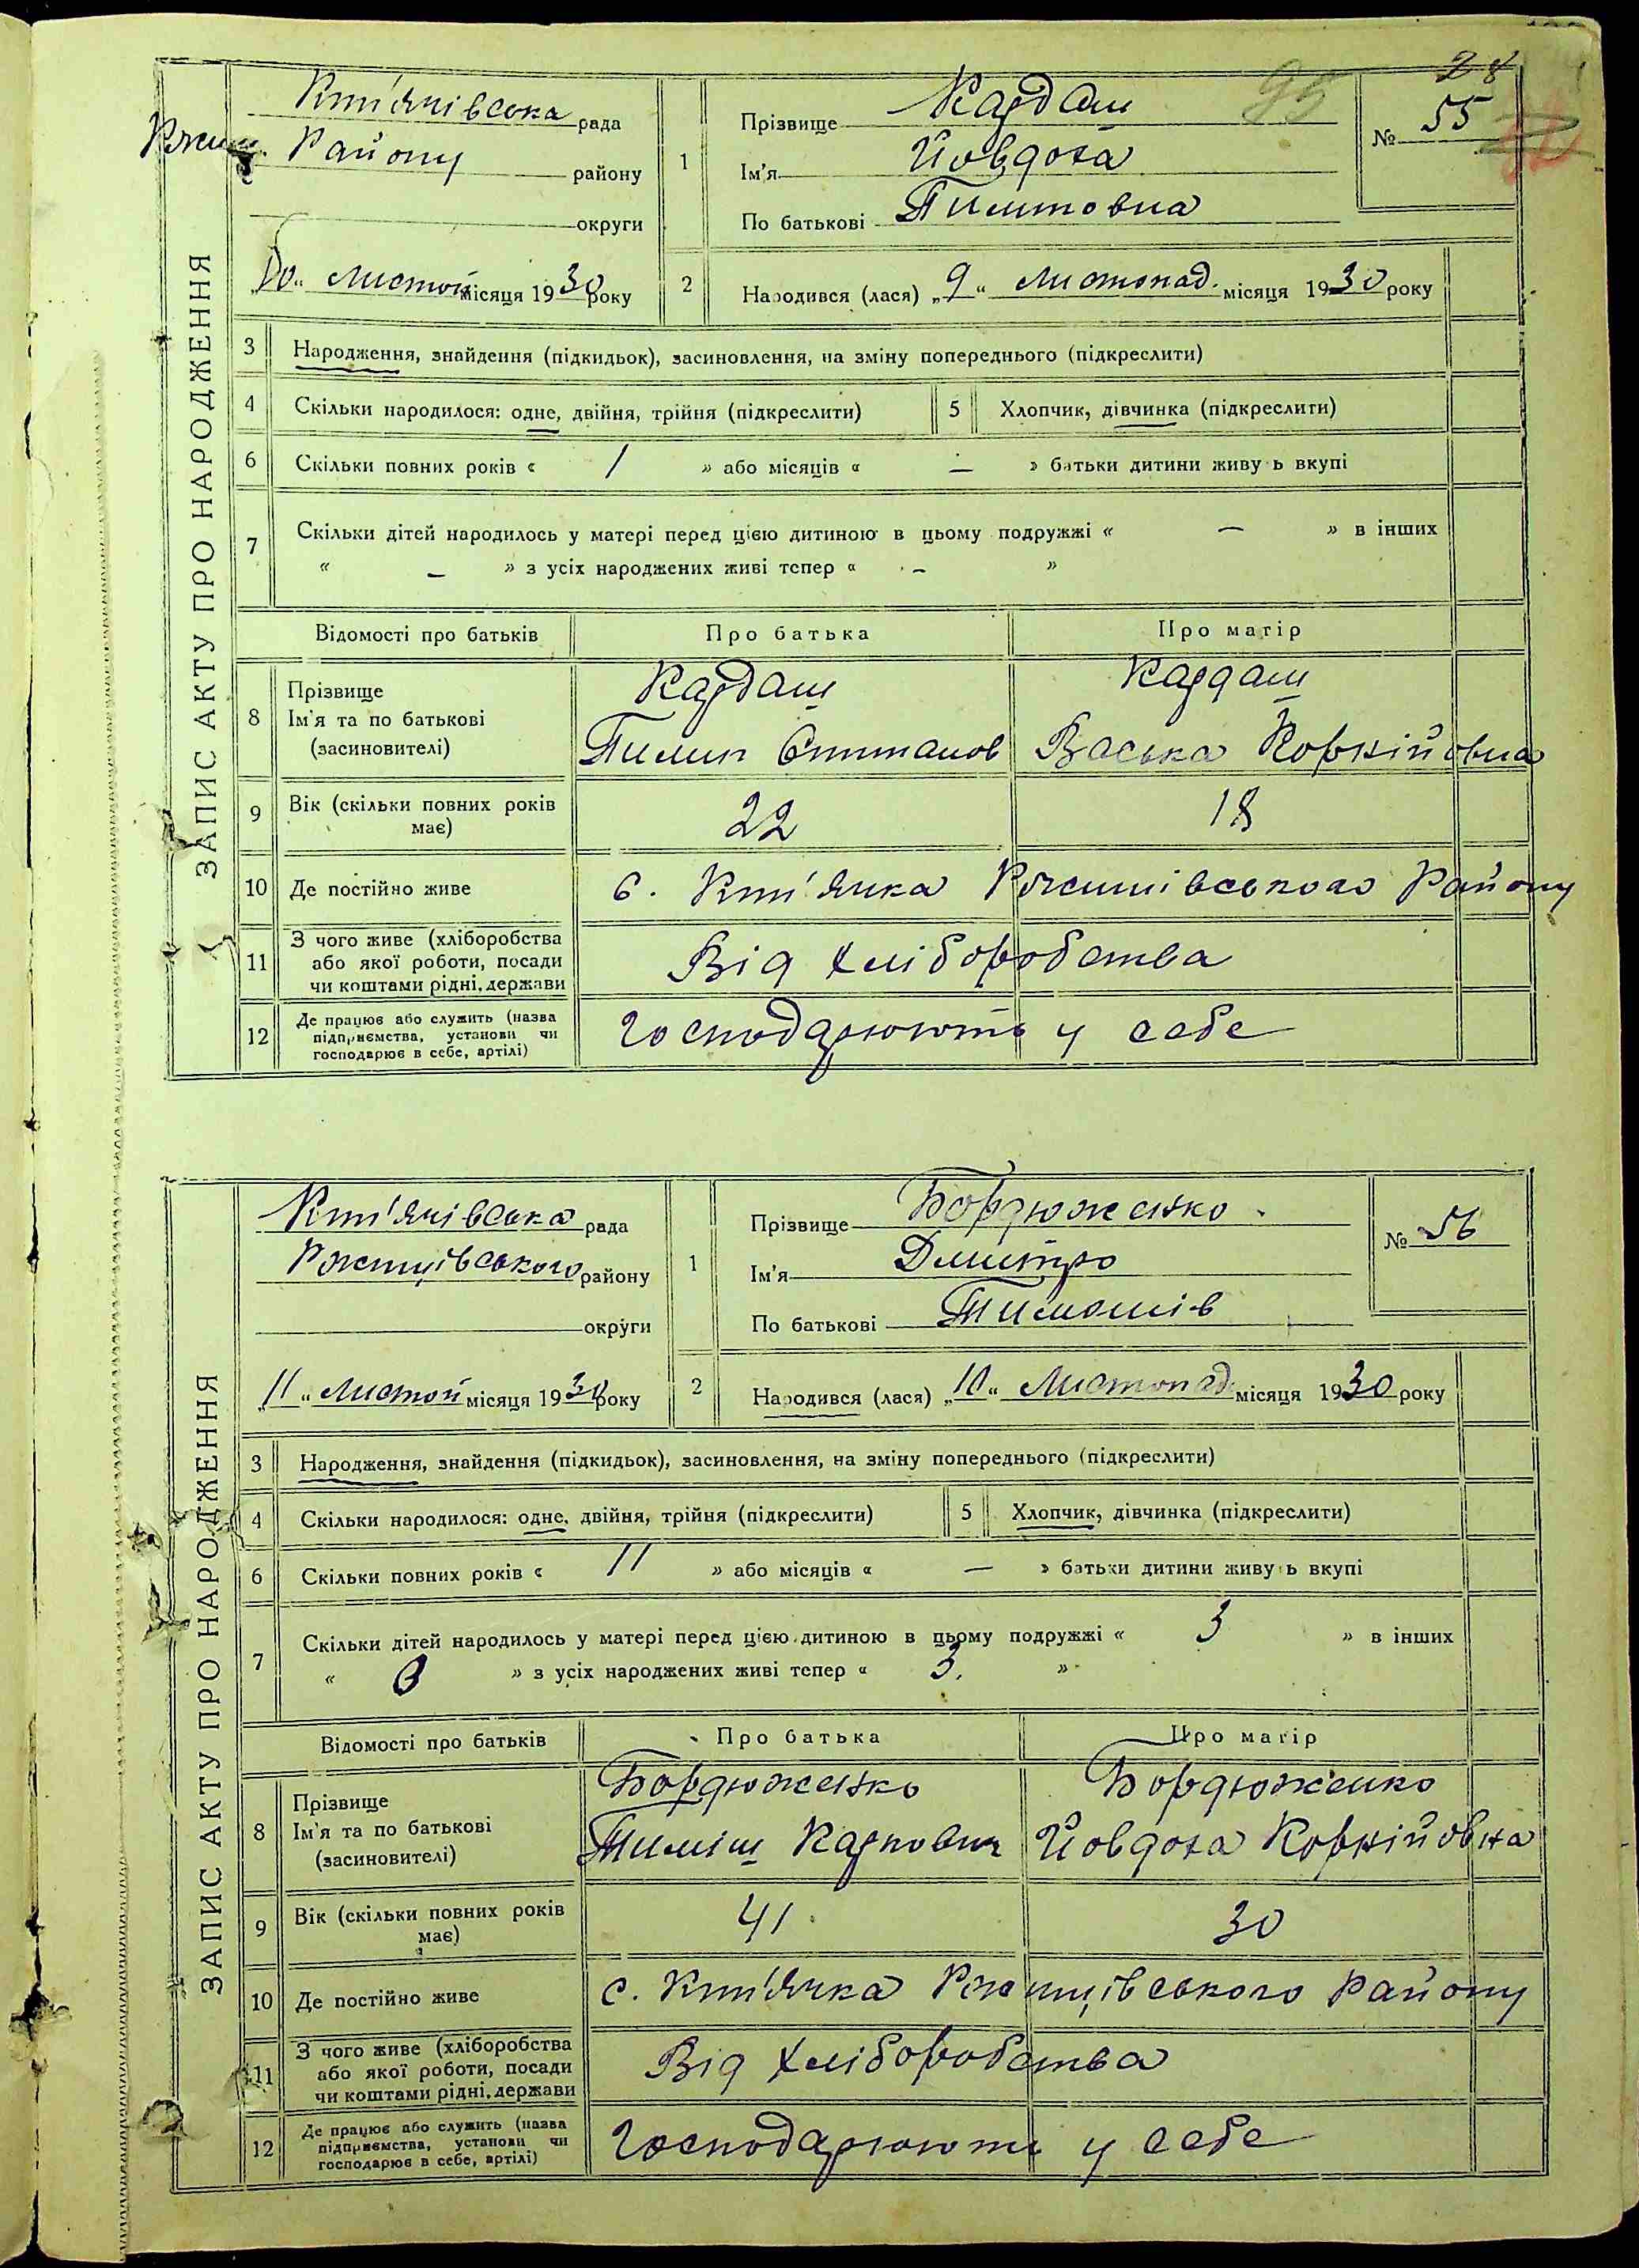 28
95
ЗАПИС АКТУ ПРО НАРОДЖЕННЯ
рада
Району району
округи
„10“ Листоп місяця 1930 року
1
Прізвище Кардаш
Ім'я Йовдоха
По батькові Пилиповна
№ 55
2 Народився (лася) „9“ Листопад. місяця 1930 року
3 Народження, знайдення (підкидьок), засиновлення, на зміну попереднього (підкреслити)
4 Скільки народилося: одне, двійня, трійня (підкреслити) 5 Хлопчик, дівчинка (підкреслити)
6 Скільки повних років « 1 » або місяців « — » батьки дитини живуть вкупі
7 Скільки дітей народилось у матері перед цією дитиною в цьому подружжі « — » в інших
« — » з усіх народжених живі тепер « — »
Відомості про батьків Про батька Про матір
8 Прізвище
Ім'я та по батькові
(засиновителі)
Кардаш
Пилип Степанов
Кардаш
Васька Корнійовна
9 Вік (скільки повних років має) 22 18
10 Де постійно живе с. Району
11 З чого живе (хліборобства або якої роботи, посади чи коштами рідні, держави Від хліборобства
12 Де працює або служить (назва підприємства, установи чи господарює в себе, артілі) Господарюють у себе
ЗАПИС АКТУ ПРО НАРОДЖЕННЯ
рада
району
округи
„11“ Листоп місяця 1930 року
1
Прізвище Бордюженко
Ім'я Дмитро
По батькові Тимошів
№ 56
2 Народився (лася) „10“ Листопад. місяця 1930 року
3 Народження, знайдення (підкидьок), засиновлення, на зміну попереднього (підкреслити)
4 Скільки народилося: одне, двійня, трійня (підкреслити) 5 Хлопчик, дівчинка (підкреслити)
6 Скільки повних років « 11 » або місяців « — » батьки дитини живуть вкупі
7 Скільки дітей народилось у матері перед цією дитиною в цьому подружжі « 3 » в інших
« 0 » з усіх народжених живі тепер « 3. »
Відомості про батьків Про батька Про матір
8 Прізвище
Ім'я та по батькові
(засиновителі)
Бордюженко
Тиміш Карпович
Бордюженко
Йовдоха Корнійовна
9 Вік (скільки повних років має) 41 30
10 Де постійно живе с. Району
11 З чого живе (хліборобства або якої роботи, посади чи коштами рідні, держави Від хліборобства
12 Де працює або служить (назва підприємства, установи чи господарює в себе, артілі) Господарюють у себе